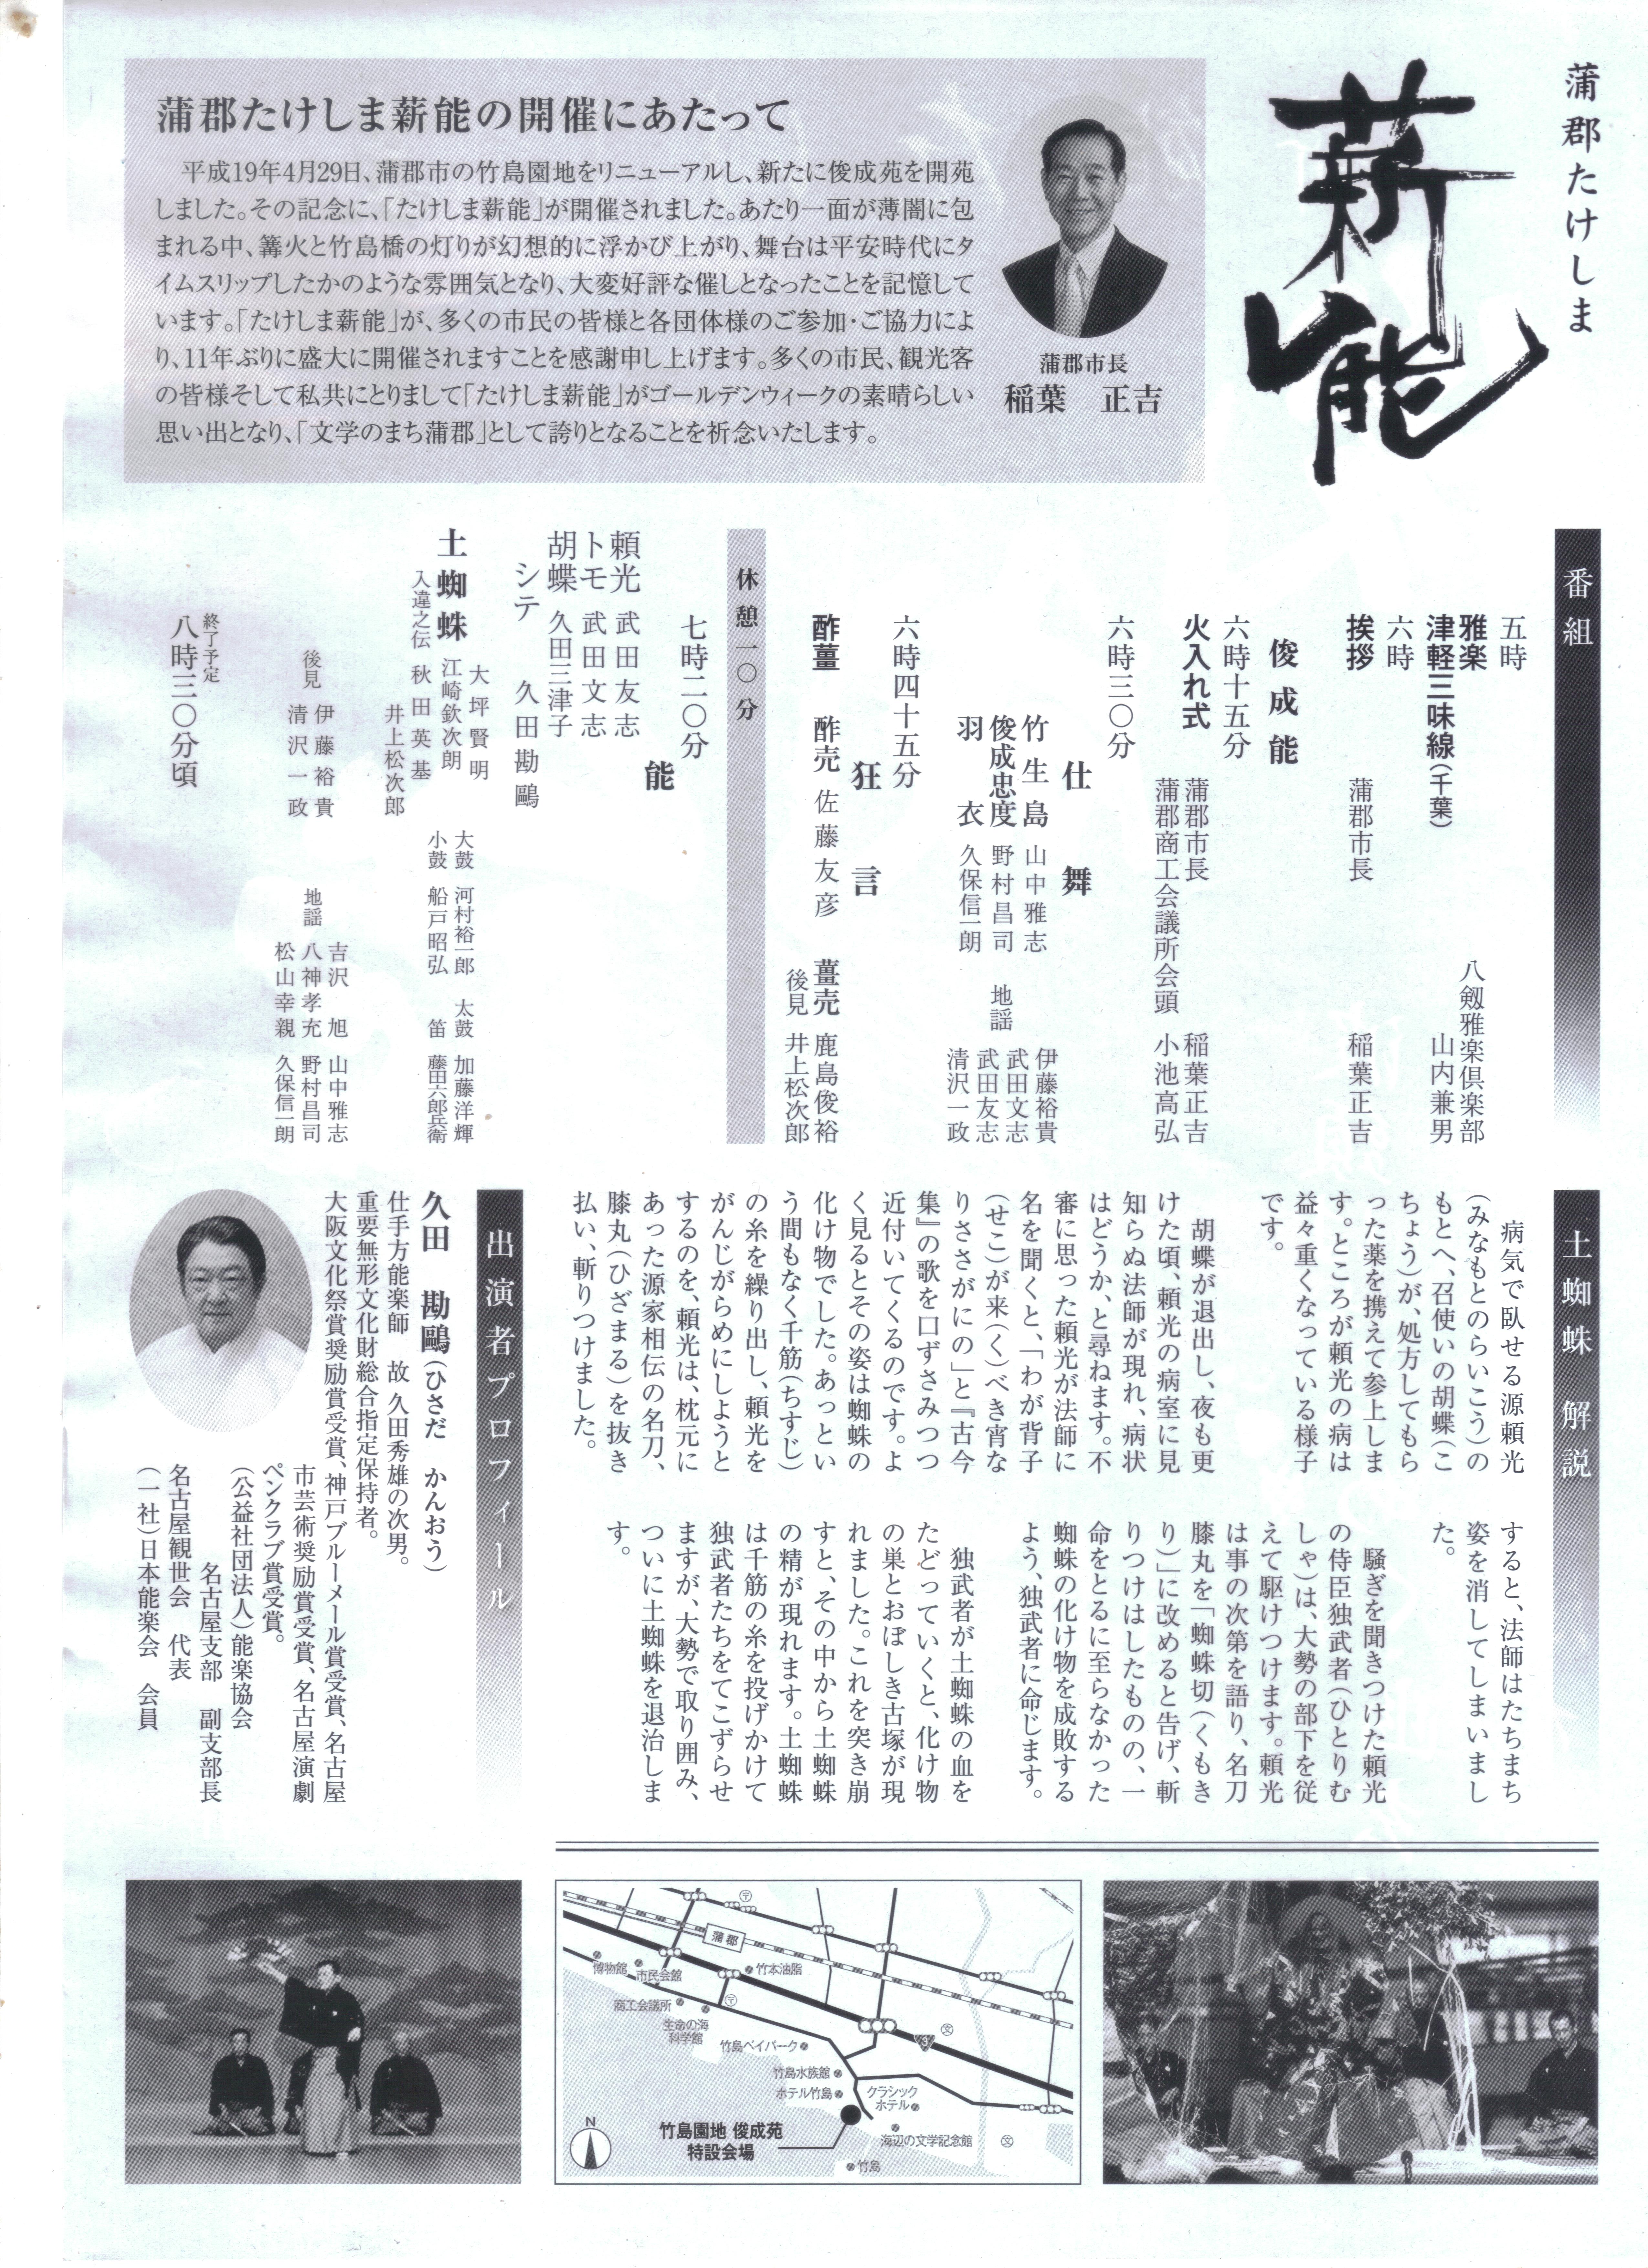 蒲郡たけしま
薪能
蒲郡たけしま薪能の開催にあたって
平成19年4月29日、蒲郡市の竹島園地をリニューアルし、新たに俊成苑を開苑
しました。その記念に、「たけしま薪能」が開催されました。あたり一面が薄闇に包
まれる中、篝火と竹島橋の灯りが幻想的に浮かび上がり、舞台は平安時代にタ
イムスリップしたかのような雰囲気となり、大変好評な催しとなったことを記憶して
います。「たけしま薪能」が、多くの市民の皆様と各団体様のご参加・ご協力によ
り、11年ぶりに盛大に開催されますことを感謝申し上げます。多くの市民、観光客
の皆様そして私共にとりまして「たけしま薪能」がゴールデンウィークの素晴らしい
思い出となり、「文学のまち蒲郡」として誇りとなることを祈念いたします。
蒲郡市長
稲葉　正吉
番組
五時
雅楽　八剱雅楽倶楽部
津軽三味線（千葉）　山内兼男
六時
挨拶　蒲郡市長　稲葉正吉
俊成能
六時十五分
火入れ式　蒲郡市長　稲葉正吉
蒲郡商工会議所会頭　小池高弘
六時三〇分
仕舞
竹生島　山中雅志
俊成忠度　野村昌司
羽衣　久保信一朗
地謡
伊藤裕貴
武田文志
武田友志
清沢一政
六時四十五分
狂言
酢薑　酢売　佐藤友彦　薑売　鹿島俊裕
後見　井上松次郎
休憩一〇分
七時二〇分
能
頼光　武田友志
トモ　武田文志
胡蝶　久田三津子
シテ　久田勘鷗
土蜘蛛
入違之伝
大坪賢明
江崎欽次朗
秋田英基
井上松次郎
大鼓　河村裕一郎　太鼓　加藤洋輝
小鼓　船戸昭弘　笛　藤田六郎兵衛
後見　伊藤裕貴
清沢一政
地謡
吉沢旭　山中雅志
八神孝充　野村昌司
松山幸親　久保信一朗
終了予定
八時三〇分頃
土蜘蛛　解説
病気で臥せる源頼光
（みなもとのらいこう）の
もとへ、召使いの胡蝶（こ
ちょう）が、処方してもら
った薬を携えて参上しま
す。ところが頼光の病は
益々重くなっている様子
です。
胡蝶が退出し、夜も更
けた頃、頼光の病室に見
知らぬ法師が現れ、病状
はどうか、と尋ねます。不
審に思った頼光が法師に
名を聞くと、「わが背子
（せこ）が来（く）べき宵な
りささがにの」と『古今
集』の歌を口ずさみつつ
近付いてくるのです。よ
く見るとその姿は蜘蛛の
化け物でした。あっとい
う間もなく千筋（ちすじ）
の糸を繰り出し、頼光を
がんじがらめにしようと
するのを、頼光は、枕元に
あった源家相伝の名刀、
膝丸（ひざまる）を抜き
払い、斬りつけました。
すると、法師はたちまち
姿を消してしまいまし
た。
騒ぎを聞きつけた頼光
の侍臣独武者（ひとりむ
しゃ）は、大勢の部下を従
えて駆けつけます。頼光
は事の次第を語り、名刀
膝丸を「蜘蛛切（くもき
り）」に改めると告げ、斬
りつけはしたものの、一
命をとるに至らなかった
蜘蛛の化け物を成敗する
よう、独武者に命じます。
独武者が土蜘蛛の血を
たどっていくと、化け物
の巣とおぼしき古塚が現
れました。これを突き崩
すと、その中から土蜘蛛
の精が現れます。土蜘蛛
は千筋の糸を投げかけて
独武者たちをてこずらせ
ますが、大勢で取り囲み、
ついに土蜘蛛を退治しま
す。
出演者プロフィール
久田　勘鷗（ひさだ　かんおう）
仕手方能楽師　故 久田秀雄の次男。
重要無形文化財総合指定保持者。
大阪文化祭賞奨励賞受賞、神戸ブルーメール賞受賞、名古屋
市芸術奨励賞受賞、名古屋演劇
ペンクラブ賞受賞。
（公益社団法人）能楽協会
名古屋支部　副支部長
名古屋観世会　代表
（一社）日本能楽会　会員
蒲郡
博物館
市民会館
竹本油脂
商工会議所
生命の海
科学館
竹島ベイパーク
竹島水族館
ホテル竹島
クラシック
ホテル
竹島園地 俊成苑
特設会場
海辺の文学記念館
竹島
3
N
〒
〒
文
文